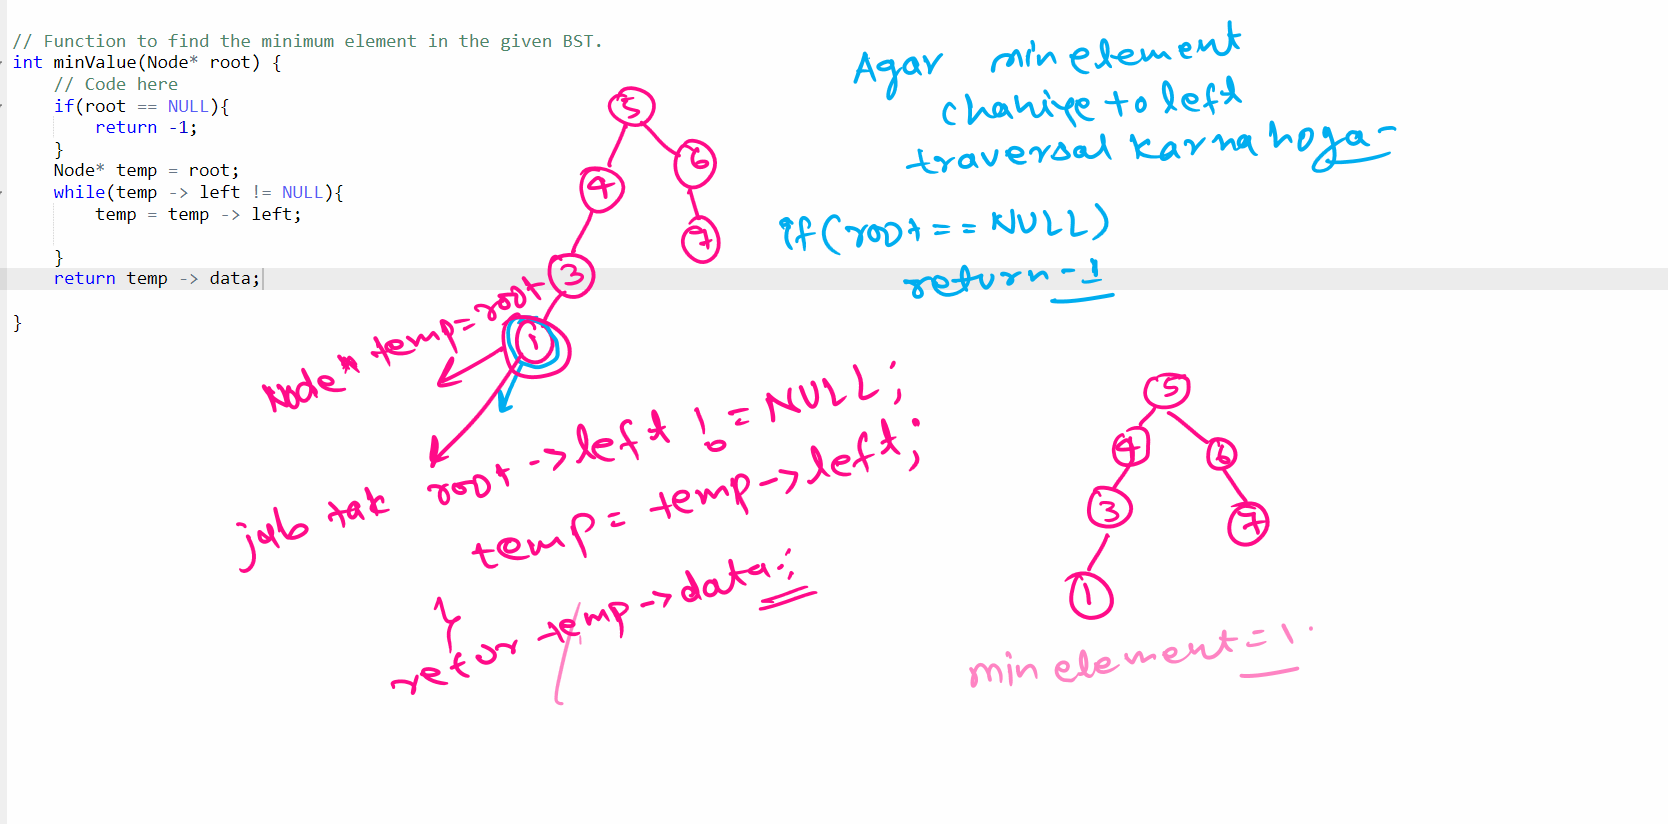 // Function to find the minimum element in the given BST.
int minValue(Node* root) {
// Code here
if(root == NULL){
return -1;
}
Node* temp = root;
while(temp -> left != NULL){
temp = temp -> left;
}
return temp -> data;
}
5
4
6
3
7
1
Agar min element
chahiye to left
traversal karna hoga-
if(root == NULL)
return -1
Node* temp=root
jab tak root->left != NULL;
temp= temp->left;
}
retur temp->data;
5
4
6
3
7
1
min element=1.